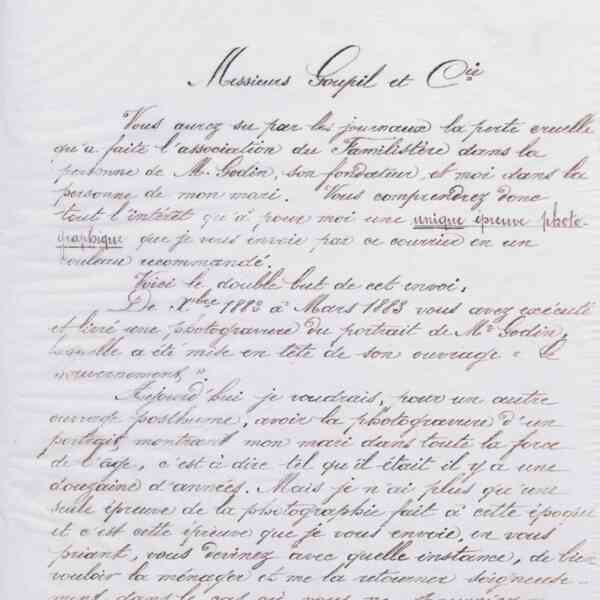 Messieurs Goupil et Cie
Vous aurez su par les journaux la perte cruelle
qu'a faite l'association du Familistère dans la
personne de M. Godin, son fondateur, et moi dans la
personne de mon mari. Vous comprendrez donc
tout l'intérêt qu'a pour moi une unique épreuve photo-
graphique que je vous envoie par ce courrier en un
rouleau recommandé.
Voici le double but de cet envoi.
De Xbre 1882 à Mars 1883 vous avez exécuté
et livré une photogravure du portrait de Mr Godin,
laquelle a été mise en tête de son ouvrage "Le
gouvernement,".
Aujourd'hui je voudrais, pour un autre
ouvrage posthume, avoir la photogravure d'un
portrait montrant mon mari dans toute la force
de l'âge, c'est à dire tel qu'il était il y a une
douzaine d'années. Mais je n'ai plus qu'une
seule épreuve de la photographie fait à cette époque
et c'est cette épreuve que je vous envoie, en vous
priant, vous devinez avec quelle instance, de bien
vouloir la ménager et me la retourner soigneuse-
ment dans le cas où vous ne